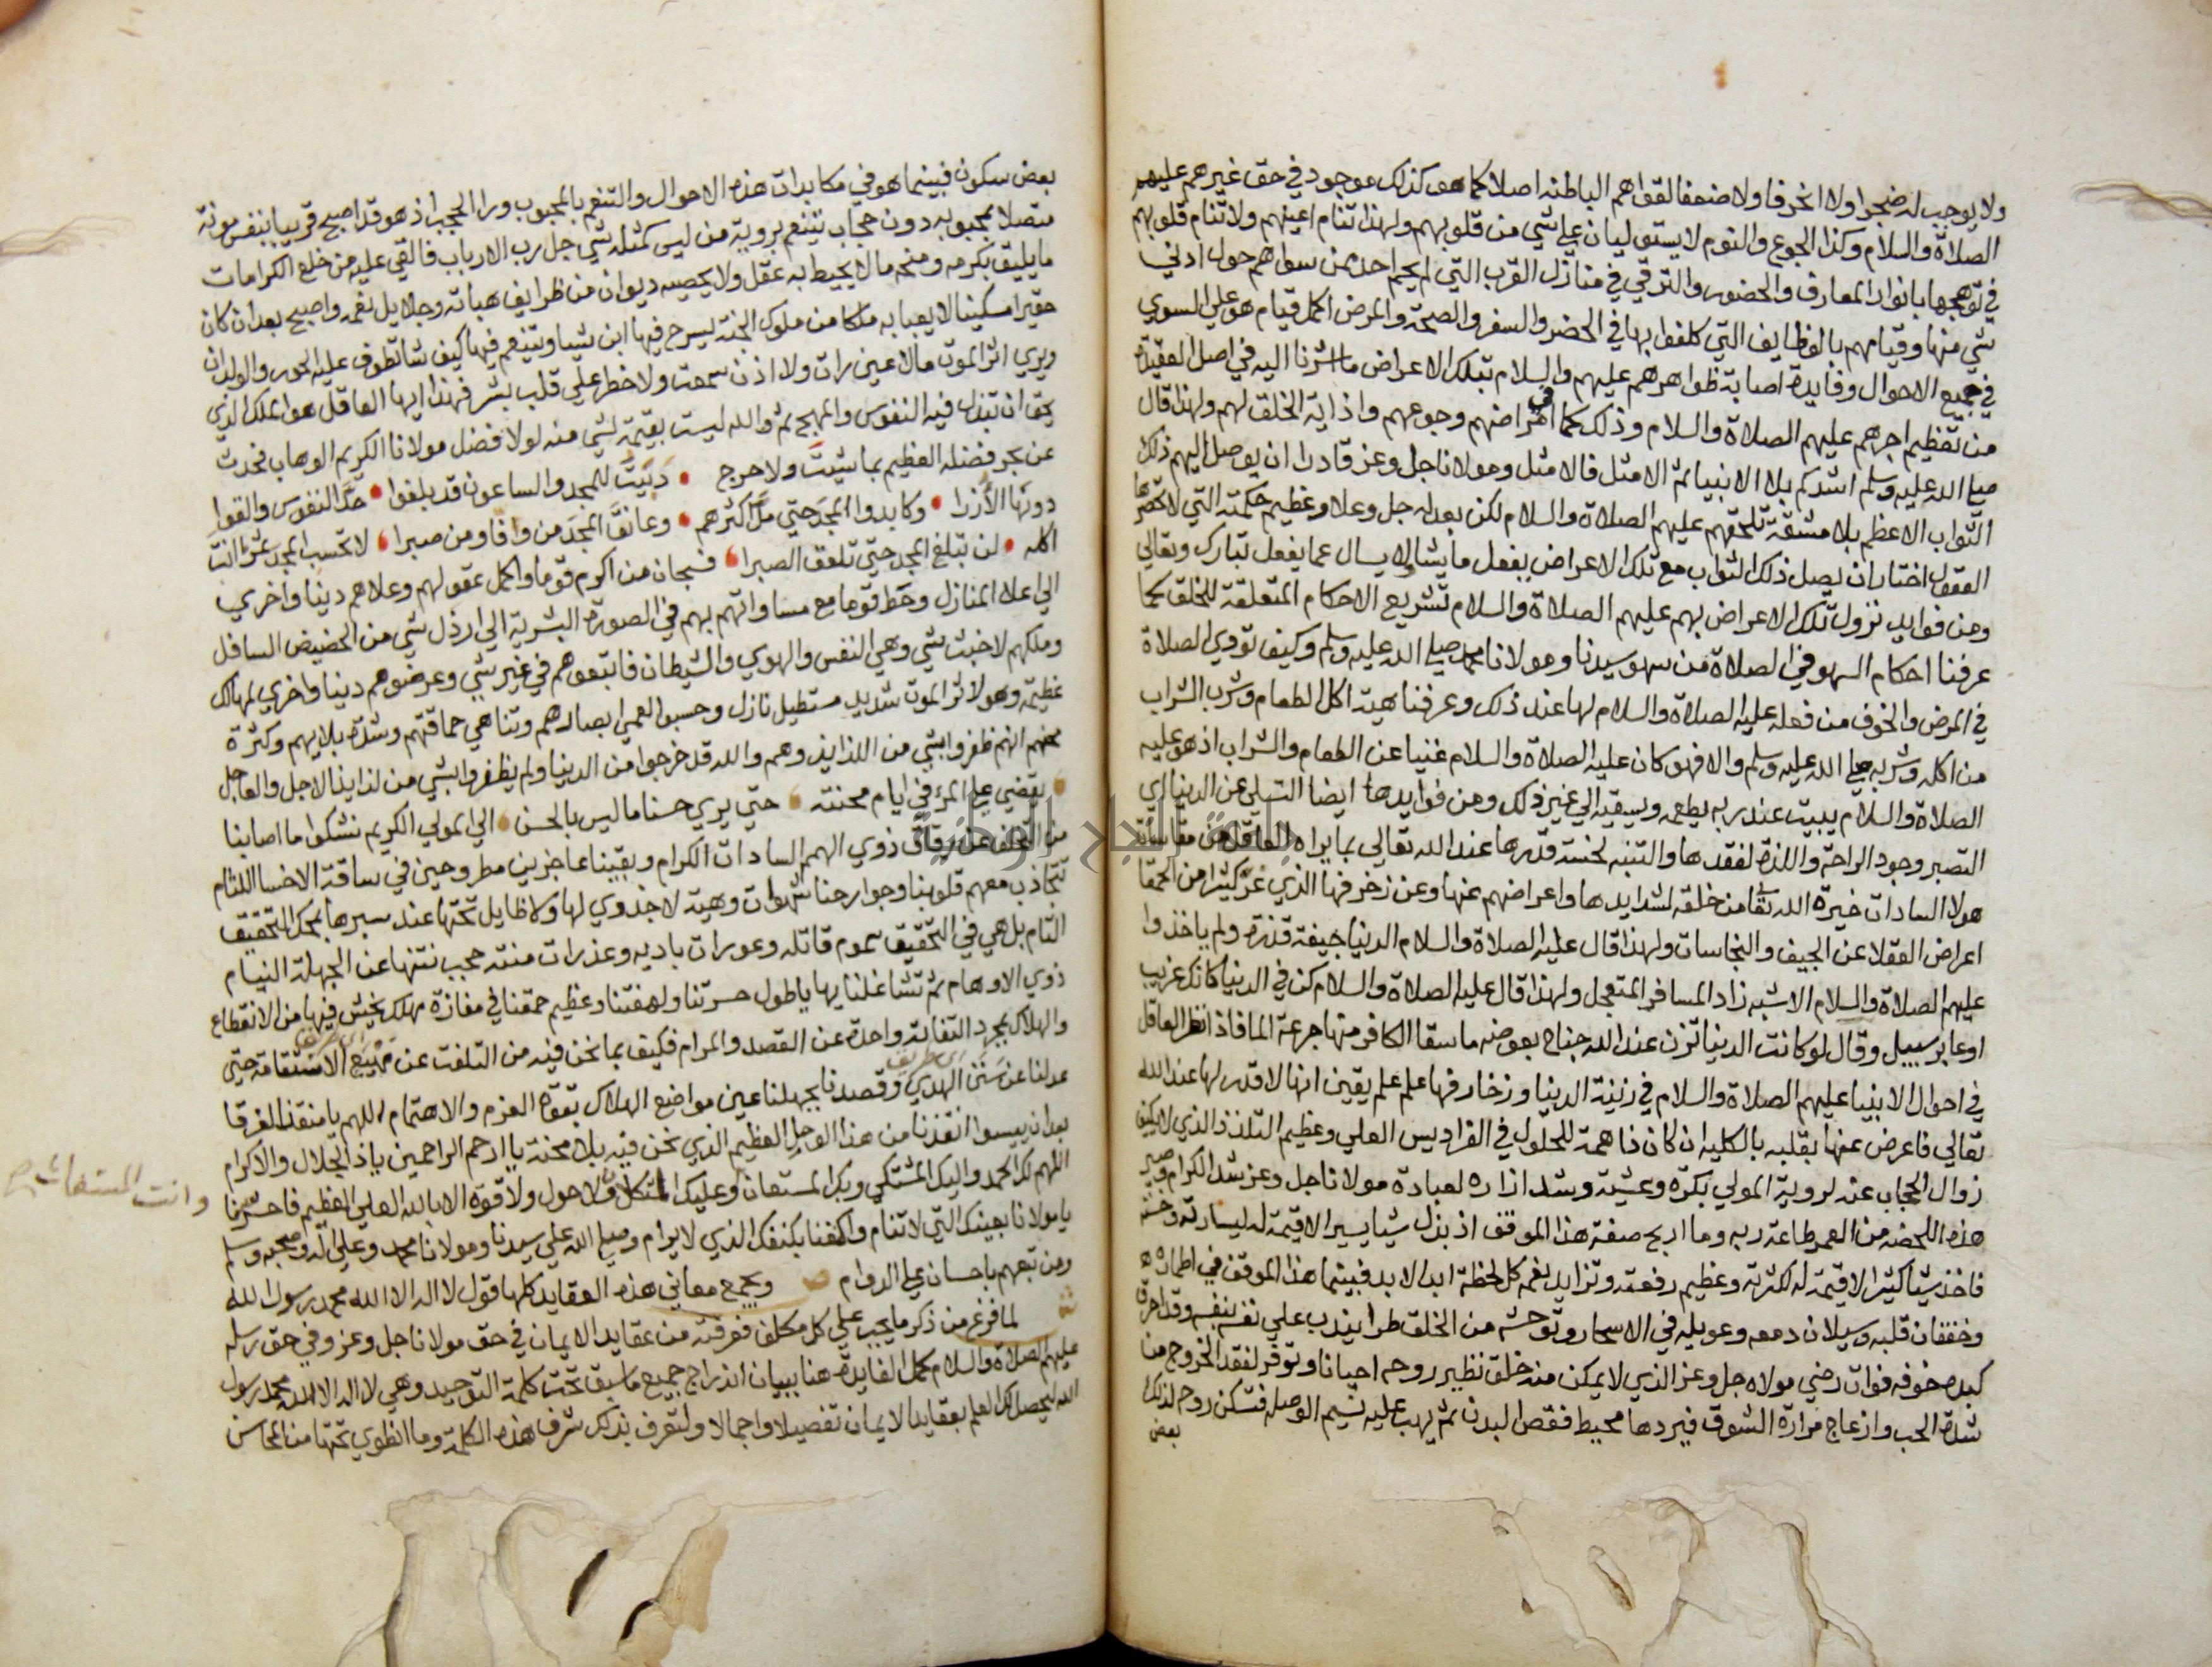 ولا يوجب له ضجرا ولا انحرفا ولا ضعفا لقواهم الباطنه اصلا كما هو كذلك موجود في حق غيرهم عليهم
الصلاة والسلام وكذا الجوع والنوم لا يستوليان علي شي من قلوبهم ولهذا تنام اعينهم ولا تنام قلوبهم
في توهجها بانوار المعارف والحضور والترقي في منازل القرب التي لم يحم احد من سواهم حول ادني
شي منها وقيامهم بالوظايف التي كلفوا بها في الحضر والسفر والصحة والمرض اكمل قيام هو علي السوي
في جميع الاحوال وفايدة اصابة ظواهرهم عليهم والسلام بتلك الاعراض ما اشرنا اليه في اصل العقيدة
من تعظيم اجرهم عليهم الصلاة والسلام وذلك كما في امراضهم وجوعهم واذاية الخلق لهم ولهذا قال
صلي الله عليه وسلم اشدكم بلا الانبيا ثم الامثل فالامثل ومولانا جل وعز قادر ان يوصل اليهم ذلك
الثواب الاعظم بلا مشقة تلحقهم عليهم الصلاة والسلام لكن بعدله جل وعلا وعظيم حكمته التي لا تحصرها
العقول اختار ان يصل ذلك الثواب مع تلك الاعراض يفعل ما يشا لا يسال عما يفعل تبارك وتعالي
ومن فوايد نزول تلك الاعراض بهم عليهم الصلاة والسلام تشريع الاحكام المتعلقة للخلق كما
عرفنا احكام السهو في الصلاة من سهو سيدنا ومولانا محمد صلي الله عليه وسلم وكيف تودي الصلاة
في المرض والخوف من فعله عليه الصلاة والسلام لها عند ذلك وعرفنا هية اكل الطعام وشرب الشراب
من اكله وشربه صلي الله عليه وسلم والا فهو كان عليه الصلاة والسلام غنيا عن الطعام والشراب اذ هو عليه
الصلاة والسلام يبيت عند ربه يطعمه ويسقيه الي غير ذلك ومن فوايدها ايضا التسلي عن الدنيا اي
التصبر وجود الراحة واللذة لفقدها والتنبه لخسة قدرها عند الله تعالي بما يراه العاقل من مقاساة
هولا السادات خيرة الله تعا من خلقه لشدايدها واعراضهم عنها وعن زخرفها الذي غر كثيرا من الحمقا
اعراض العقلا عن الجيف والنجاسات ولهذا قال عليه الصلاة والسلام الدنيا جيفة قذرة ولم ياخذوا
عليهم الصلاة والسلام الا شبه زاد المسافر المتعجل ولهذا قال عليه الصلاة والسلام كن في الدنيا كانك غريب
او عابر سبيل وقال لو كانت الدنيا تزن عند الله جناح بعوضه ما سقا الكافر منها جرعة الما فاذا نظر العاقل
في احوال الانبيا عليهم الصلاة والسلام في زينة الدنيا وزخارفها علم علم يقين انها لا قدر لها عند الله
تعالي فاعرض عنها بقلبه بالكليه ان كان ذا همة للحلول في الفراديس العلي وعظيم التلذذ الذي لا يكيف
زوال الحجاب عنه لروية المولي بكرة وعشية وشد ازاره لعبادة مولانا جل وعز شد الكرام وصبر
هذه اللحضه من العمر طاعة ربه وما اربح صفة هذا الموفق اذ بذل شيا يسيرا لا قيمة له ليسارته وخسته
فاخذ شيا كثيرا لا قيمة له لكثرته وعظيم رفعته وتزايد نعمه كل لحظة ابد الابد فبينما هذا الموفق في اطماره
وخفقان قلبه وسيلان دمعه وعويله في الاسحار وتوحشه من الخلق طرا يندب علي نفسه بنفسه وقد احرق
كبده خوفه فوات رضي مولاه جل وعز الذي لا يمكن منه خلق نظير روحه احيانا وتوفر لفقد الخروج من
شدة الحب وازعاج مرارة الشوق فيردها محيط قفص البدن ثم يهب عليه نسيم الوصله فتسكن روحه لذلك
بعض
بعض سكون فبينما هو في مكابدات هذه الاحوال والتنعم بالمحبوب ورا الحجب اذ هو قد اصبح قريبا بنفس موته
متصلا بمحبوبه دون حجاب يتنعم بروية من ليس كمثله شي جل رب الارباب فالقي عليه من خلع الكرامات
ما يليق بكرمه ومنحه ما لا يحيط به عقل ولا يحصيه ديوان من ظرايف هباته وجلايل نعمه واصبح بعد ان كان
حقيرا مسكينا لا يعبا به ملكا من ملوك الجنة يسرح فيها اين شا ويتنعم فيها كيف شا تطوف عليه الحور والولدان
ويري اثر الموت ما لا عين رات ولا اذن سمعت ولا خطر علي قلب بشر فهذا ايها العاقل هو الملك الذي
يحق ان تبذل فيه النفوس والمهج ثم والله ليست بقيمة لشي منه لولا فضل مولانا الكريم الوهاب فحدث
عن بحر فضله العظيم بما شيت ولا حرج • دَبَيتَ للمجد والساعون قد بلغوا • حدَّ النفوس والقوا
دونها الأُزرا • وكابدوا المجد حتي ملَّ اكثرهم • وعانق المجد من وافا ومن صبرا • لا تحسب المجد تمرا انت
اكله • لن تبلغ المجد حتي تلعق الصبرا • فسبحان من اكرم قوما واكمل عقولهم وعلاهم دينا واخري
الي اعلا المنازل وحط قوما مع مساواتهم بهم في الصورة البشرية الي ارذل شي من الحضيض السافل
وملكهم لاخبث شي وهي النفس والهوي والشيطان فاتبعوهم في غير شي وعرضوهم دينا واخري لمهالك
عظيمة وهولا ثر الموت شديد مستطيل نازل وحسبوا لعمي ابصارهم وتناهي حماقتهم وشدة بلايهم وكثرة
محنهم انهم ظفروا بشي من اللذايذ وهم والله قد خرجوا من الدنيا ولم يظفروا بشي من لذايذ الاجل والعاجل
• يقضي علي المرء في ايام محنته • حتي يري حسنا ما ليس بالحسن • الي المولي الكريم نشكوا ما اصابنا
من التخلف عن رفاق ذوي الهمم السادات الكرام وبقينا عاجزين مطروحين في ساقة الاخسا اللئام
تتجاذب معهم قلوبنا وجوارحنا شهوات وهية لا جدوي لها ولا طايل تحتها عند سبرها بمحك التحقيق
التام بل هي في التحقيق سموم قاتله وعورات باديه وعذرات منتنه حجب نتنها عن الجهلة النيام
ذوي الاوهام ثم تشاغلنا بها يا طول حسرتنا ولهفتنا وعظيم حمقنا في مفازة مهلك يخشي فيها من الانقطاع
والهلاك بمجرد التفاتة واحدة عن القصد والمرام فكيف بما نحن فيه من التلفت عن مَهْيَع الاستقامة حتي
عدلنا عن سَنَن الهدي وقصدنا بجهلنا عين مواضع الهلاك بقوة العزم والاهتمام اللهم يا منقذ الغرقا
بعد ان ييسوا انقذنا من هذا الوحل العظيم الذي نحن فيه بلا محنة يا ارحم الراحمين يا ذا الجلال والاكرام
اللهم لك الحمد واليك المشتكي وبك المستعان وعليك المتكلان ولا حول ولا قوة الا بالله العلي العظيم فاحرسنا
وانت المستغاث صح
يا مولانا بعينك التي لا تنام واكنفنا بكنفك الذي لا يرام وصلي الله علي سيدنا ومولانا محمد وعلي اله وصحبه وسلم
ومن تبعهم باحسان علي الدوام ص ويجمع معاني هذه العقايد كلها قول لا اله الا الله محمد رسول الله
ش لما فرغ من ذكر ما يجب علي كل مكلف معرفته من عقايد الايمان في حق مولانا جل وعز وفي حق رسله
عليهم الصلاة والسلام كمل الفايدة هنا ببيان اندراج جميع ما سبق تحت كلمة التوحيد وهي لا اله الا الله محمد رسول
الله ليحصل لك العلم بعقايد الايمان تفصيلا واجمالا ولتعرف بذلك شرف هذه الكلمة وما انطوي تحتها من المحاسن
جامعة النجاح الوطنية